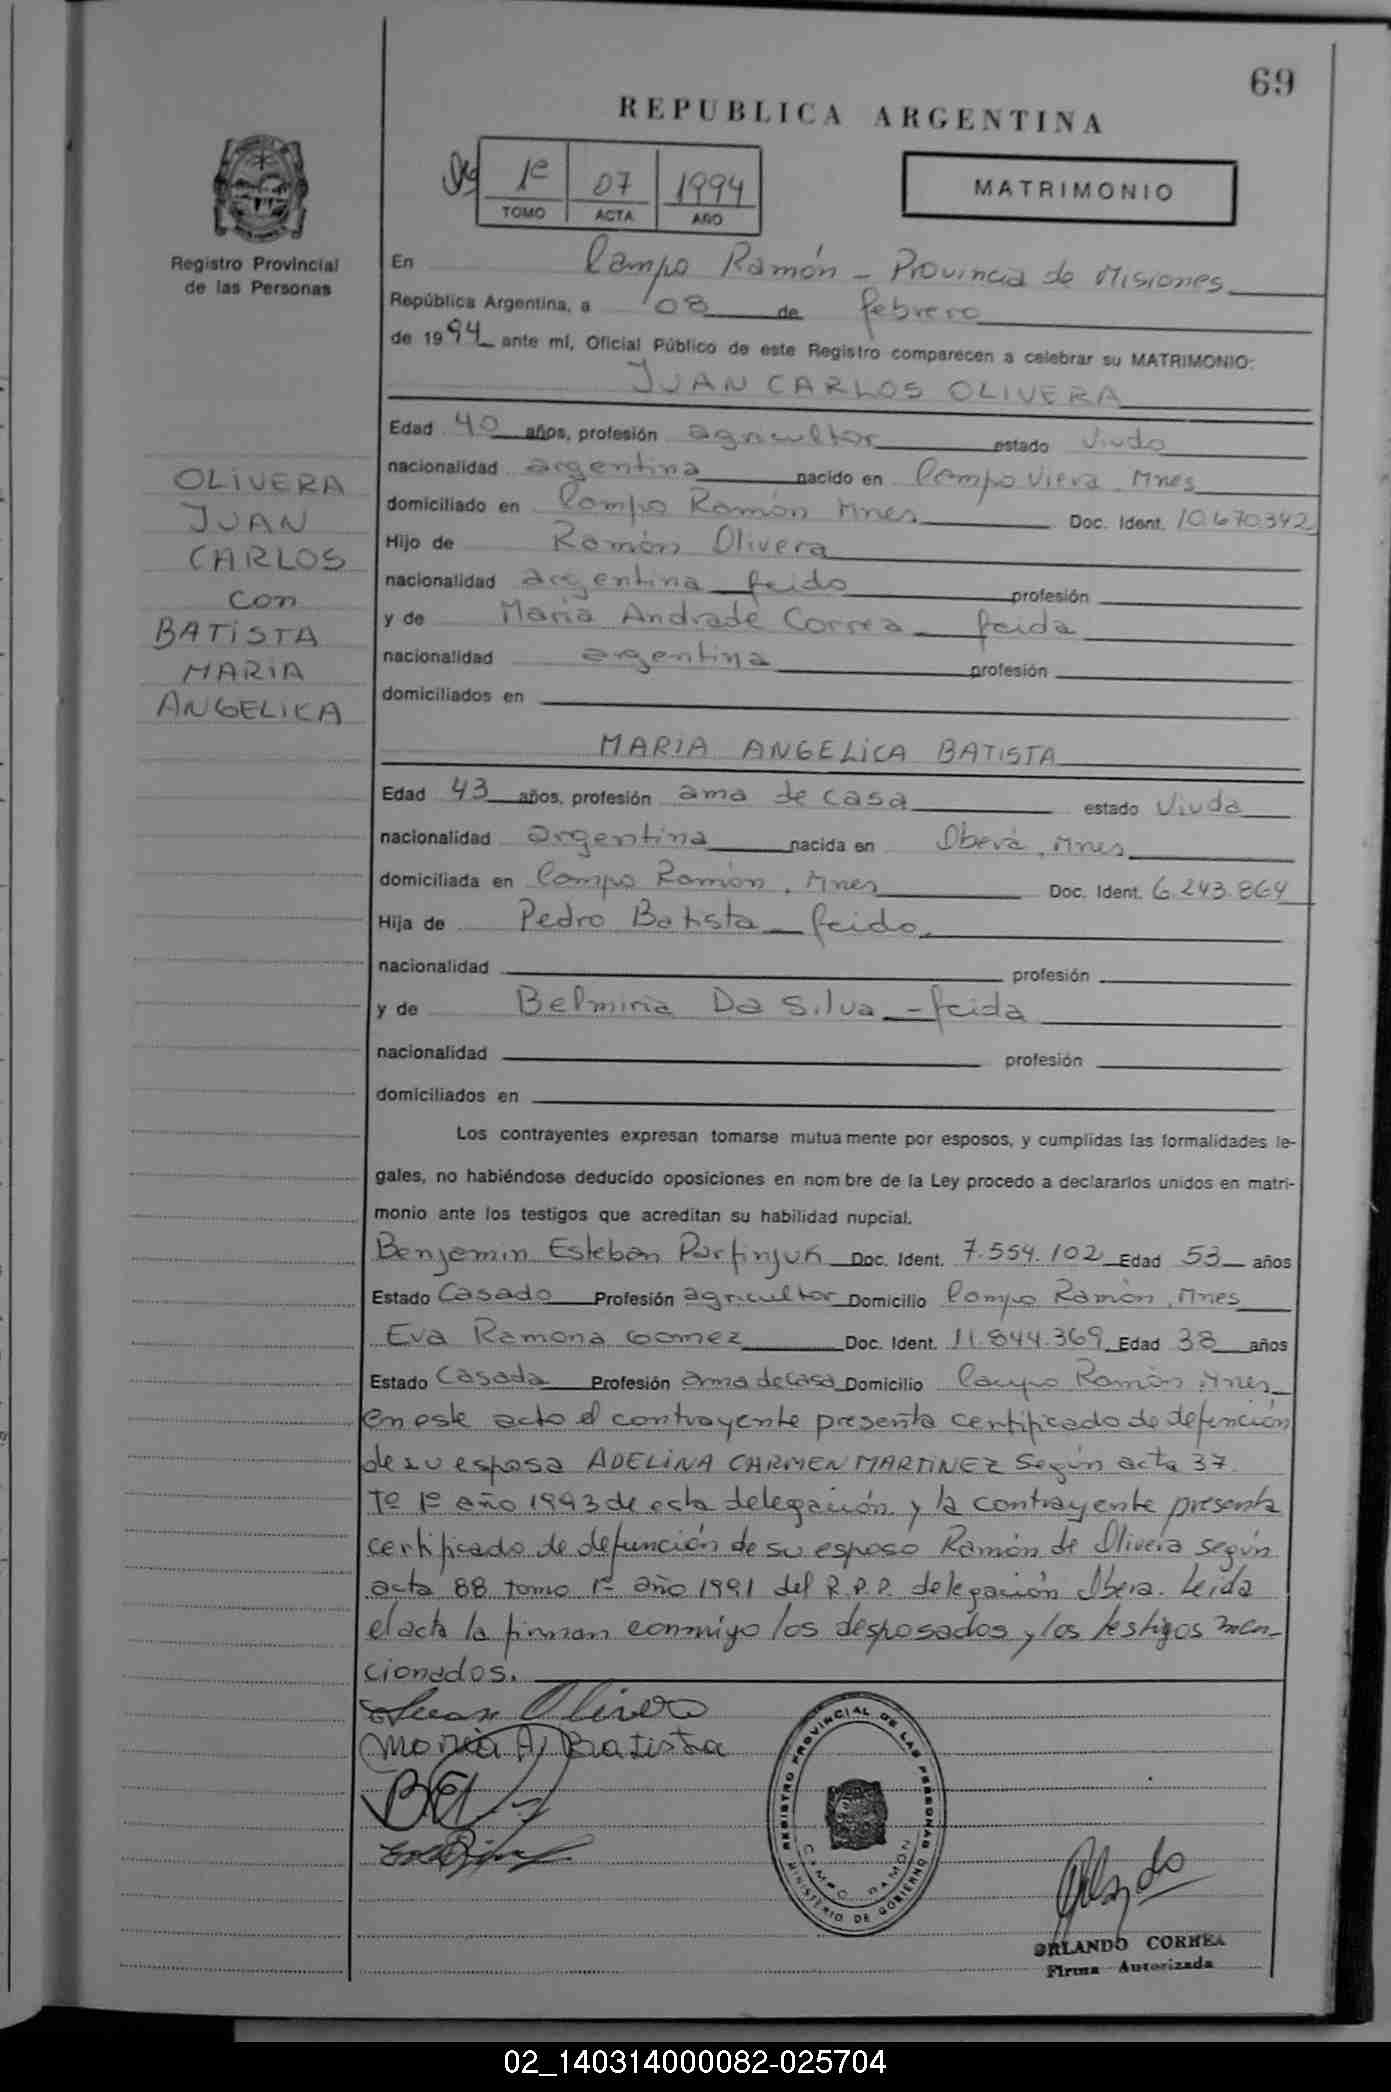 69
REPUBLICA ARGENTINA
1º 07 1994
TOMO ACTA AÑO
MATRIMONIO
Registro Provincial
de las Personas
En Campo Ramón - Provincia de Misiones
República Argentina, a 08 de febrero
de 1994 ante mí, Oficial Público de este Registro comparecen a celebrar su MATRIMONIO:
JUAN CARLOS OLIVERA
Edad 40 años, profesión agricultor estado Viudo
nacionalidad argentina nacido en Campo Viera Mnes
domiciliado en Campo Ramón Mnes Doc. Ident. 10.670.342
Hijo de Ramón Olivera
nacionalidad argentina fcido profesión
y de Maria Andrade Correa fcida
nacionalidad argentina profesión
domiciliados en
OLIVERA
JUAN
CARLOS
con
BATISTA
MARIA
ANGELICA
MARIA ANGELICA BATISTA
Edad 43 años, profesión ama de casa estado Viuda
nacionalidad argentina nacida en Oberá, Mnes
domiciliada en Campo Ramón, Mnes Doc. Ident. 6.243.864
Hija de Pedro Batista fcido.
nacionalidad profesión
y de Belmiria Da Silva - fcida
nacionalidad profesión
domiciliados en
Los contrayentes expresan tomarse mutuamente por esposos, y cumplidas las formalidades le-
gales, no habiéndose deducido oposiciones en nombre de la Ley procedo a declararlos unidos en matri-
monio ante los testigos que acreditan su habilidad nupcial.
Benjamin Esteban Parfinjuk Doc. Ident. 7.554.102 Edad 53 años
Estado Casado Profesión agricultor Domicilio Campo Ramón, Mnes
Eva Ramona Gomez Doc. Ident. 11.844.369 Edad 38 años
Estado Casada Profesión ama de casa Domicilio Campo Ramón, Mnes
en este acto el contrayente presenta certificado de defunción
de su esposa ADELINA CARMEN MARTINEZ Según acta 37
Tº 1º año 1993 de esta delegación y la contrayente presenta
certificado de defunción de su esposo Ramón de Olivera según
acta 88 tomo 1º año 1991 del R.P.P. delegación Obera. Leida
el acta la firman conmigo los desposados y los testigos men-
cionados.
Juan Olivera
Maria A, Batista
REGISTRO PROVINCIAL DE LAS PERSONAS
MINISTERIO DE GOBIERNO
CAMPO RAMON
ORLANDO CORREA
Firma Autorizada
02_140314000082-025704